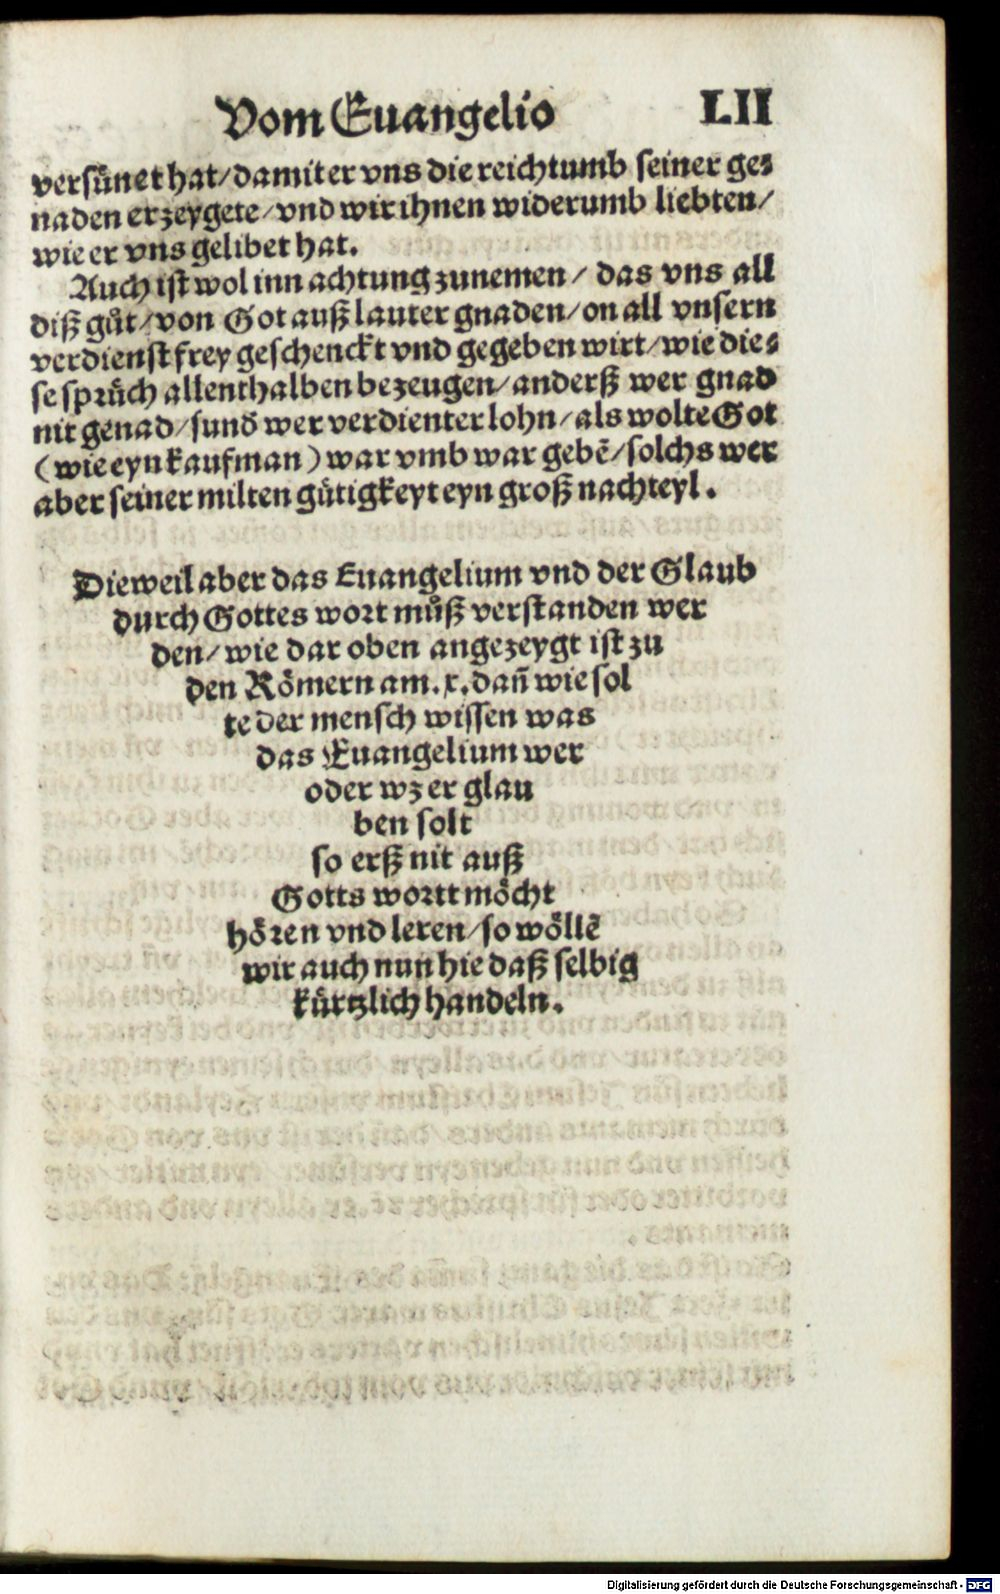 Vom Euangelio LII
versünet hat/damit er vns die reichtumb seiner ge⸗
naden erzeygete/vnd wir ihnen widerumb liebten/
wie er vns gelibet hat.
Auch ist wol inn achtung zunemen/ das vns all
diß gůt/von Got auß lauter gnaden/on all vnsern
verdienst frey geschenckt vnd gegeben wirt/wie die⸗
se sprüch allenthalben bezeugen/anderß wer gnad
nit genad/sunđ wer verdienter lohn/als wolte Got
(wie eyn kaufman) war vmb war gebē/solchs wer
aber seiner milten gütigkeyt eyn groß nachteyl.
Dieweil aber das Euangelium vnd der Glaub
durch Gottes wort můß verstanden wer
den/wie dar oben angezeygt ist zu
den Römern am.x.dañ wie sol
te der mensch wissen was
das Euangelium wer
oder wz er glau
ben solt
so erß nit auß
Gotts wortt möcht
hören vnd leren/so wöllē
wir auch nun hie daß selbig
kürtzlich handeln.
Digitalisierung gefördert durch die Deutsche Forschungsgemeinschaft - DFG